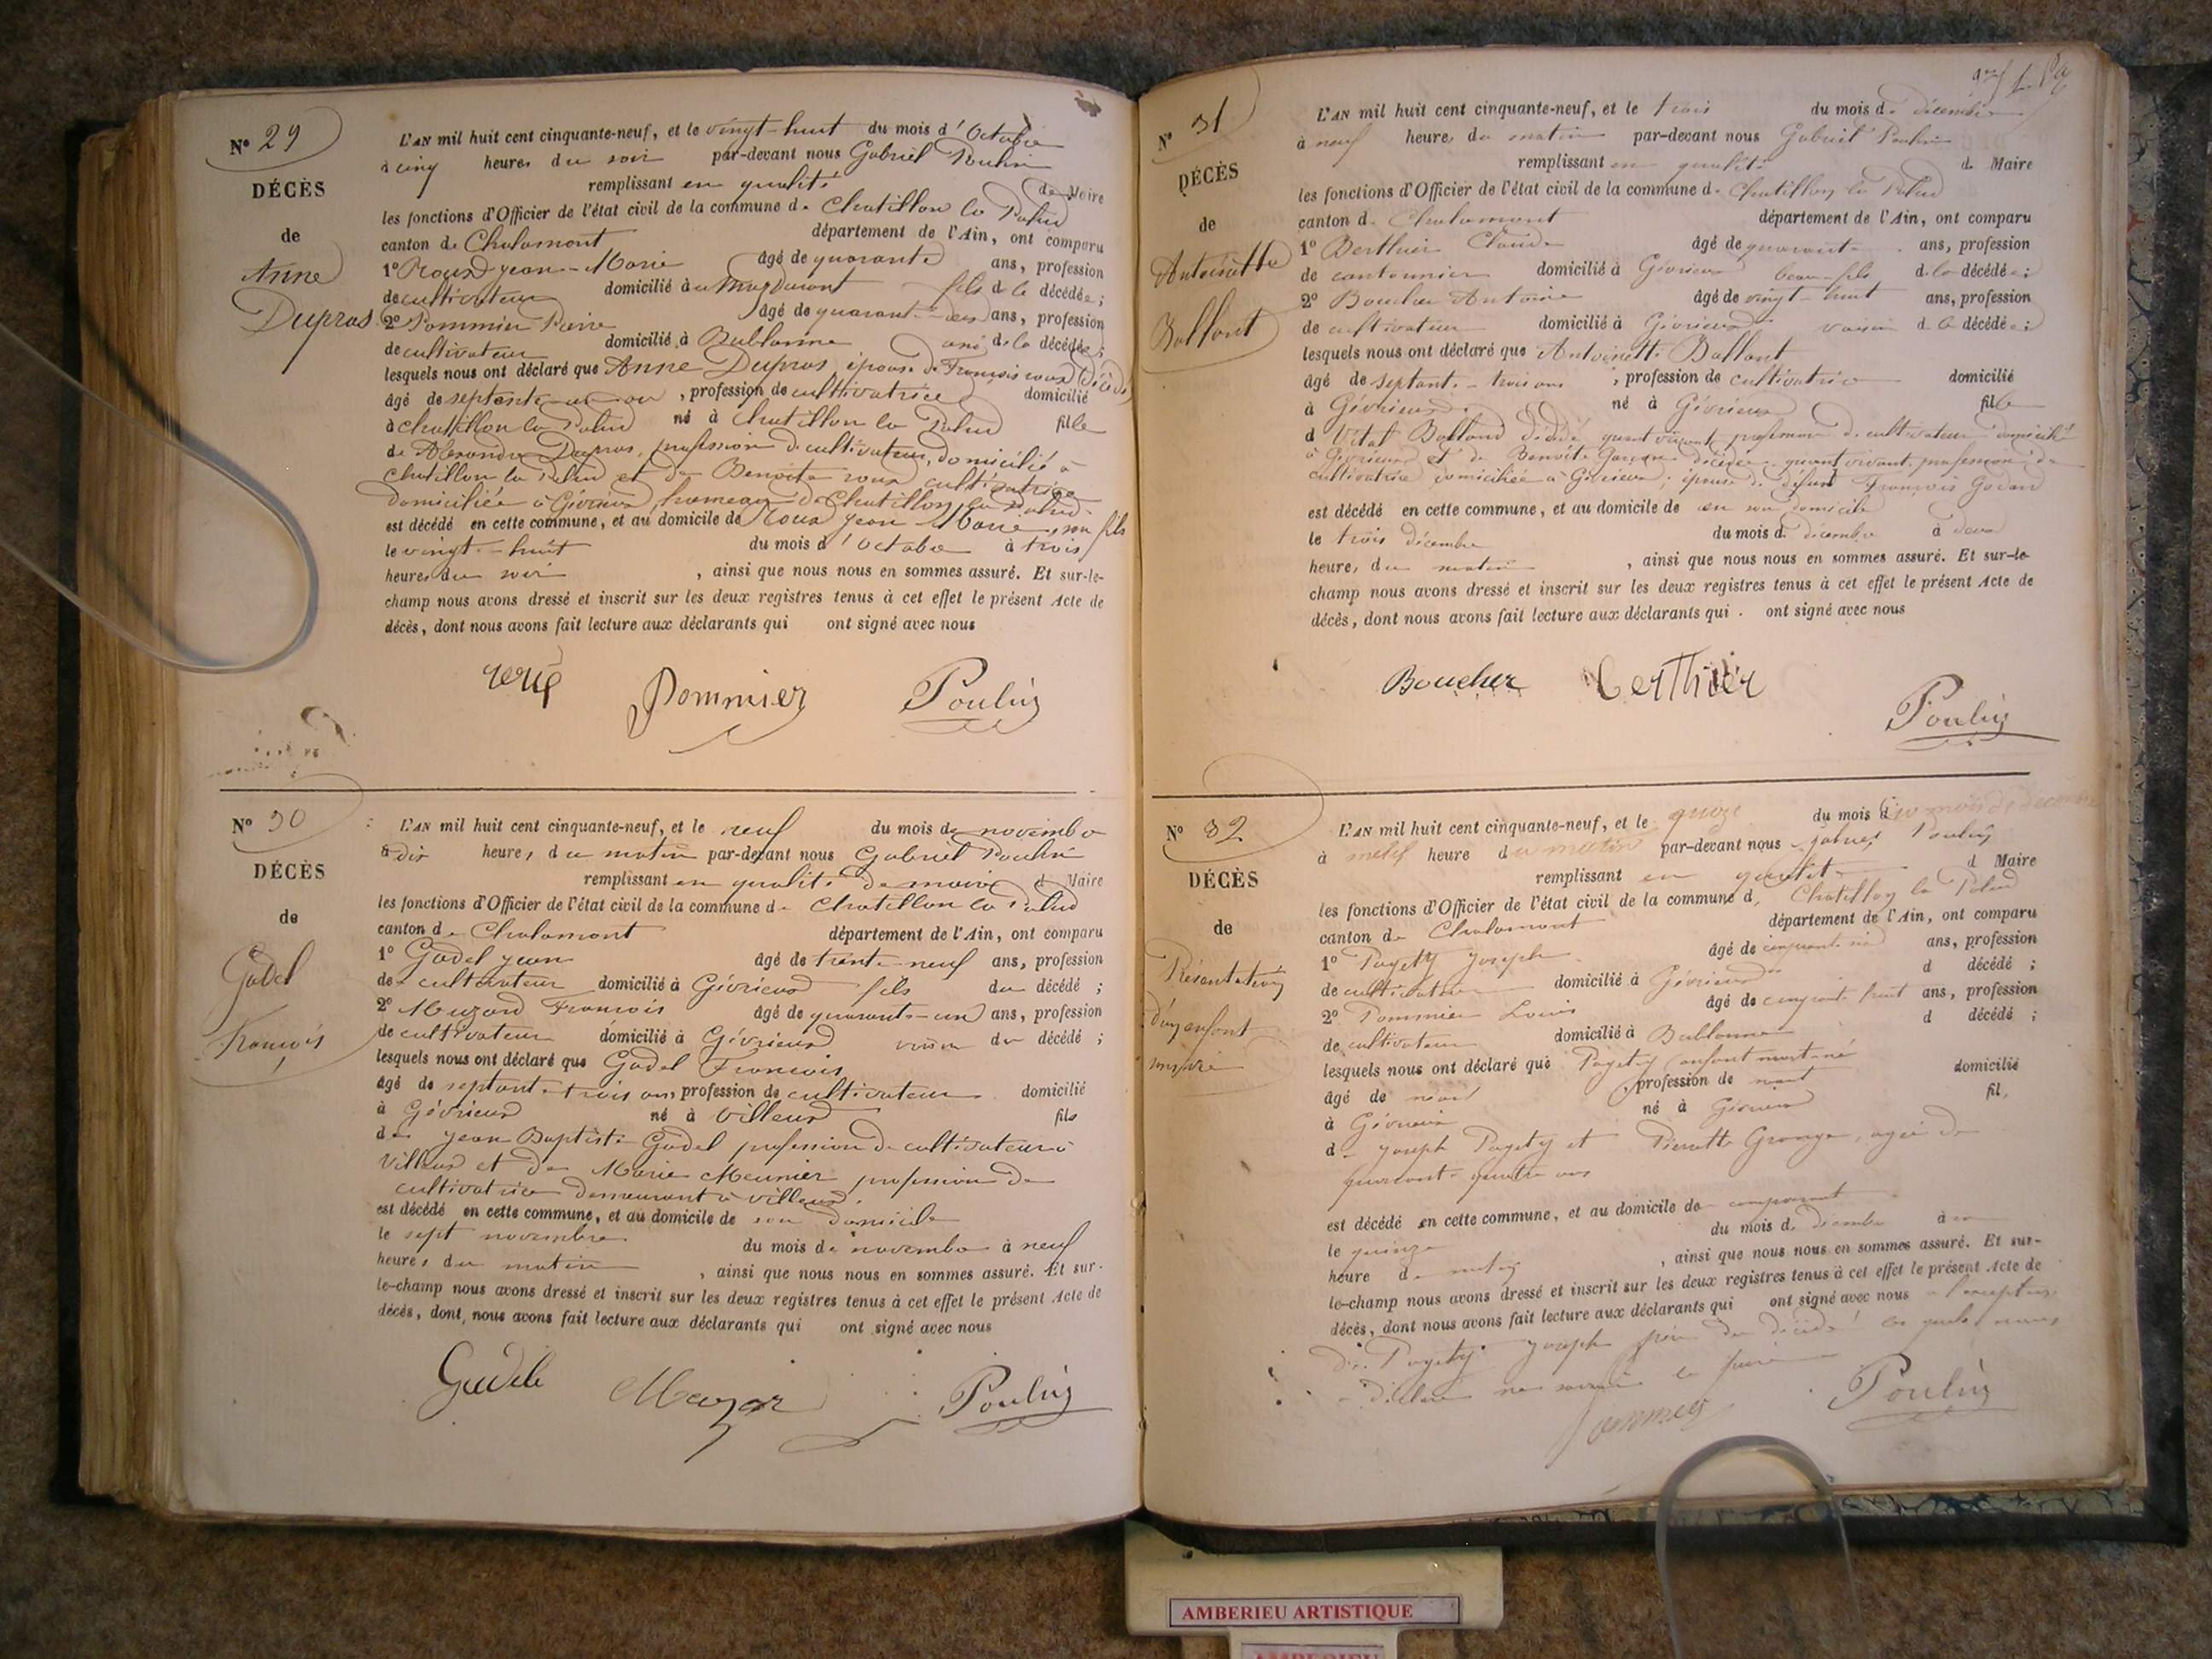 N° 29
DÉCÈS
de
Anne
Dupras
L'AN mil huit cent cinquante-neuf, et le vingt-huit du mois d'Octobre
à cinq heures du soir par-devant nous Gabriel Poulin
remplissant en qualité de Maire
les fonctions d'Officier de l'état civil de la commune de Chatillon la Palud
canton de Chalamont département de l'Ain, ont comparu
1° Roux Jean-Marie âgé de quarante ans, profession
de cultivateur domicilié à fils de la décédée;
2° Pommier Pierre âgé de quarante-deux ans, profession
de cultivateur domicilié à Bublanne ami de la décédée;
lesquels nous ont déclaré que Anne Dupras, épouse de François roux décédé
âgé de septante profession de cultivatrice domicilié
à chatillon la Palud né à Chatillon la Palud fille
de Dupras, profession de cultivateur, domicilié à
chatillon la Palud et de Benoite roux cultivatrice
domiciliée à Gévrieux, hameau de Chatillon la Palud
est décédé en cette commune, et au domicile de Roux Jean-Marie, son fils
le vingt-huit du mois d'Octobre à trois
heures du soir, ainsi que nous nous en sommes assuré. Et sur-le-
champ nous avons dressé et inscrit sur les deux registres tenus à cet effet le présent Acte de
décès, dont nous avons fait lecture aux déclarants qui ont signé avec nous
Pommier Poulin
N° 30
DÉCÈS
de
Godel
François
L'AN mil huit cent cinquante-neuf, et le neuf du mois de novembre
à dix heures du matin par-devant nous Gabriel Poulin
remplissant en qualité de maire d Maire
les fonctions d'Officier de l'état civil de la commune de Chatillon la Palud
canton de Chalamont département de l'Ain, ont comparu
1° Godel Jean âgé de trente-neuf ans, profession
de cultivateur domicilié à Gévrieux fils du décédé;
2° Muzard François âgé de quarante-un ans, profession
de cultivateur domicilié à Gévrieux voisin du décédé;
lesquels nous ont déclaré que Godel François
âgé de septante-trois ans, profession de cultivateur domicilié
à Gévrieux né à Villeux fils
de Jean Baptiste Godel profession de cultivateur à
Villeux et de Marie Meunier profession de
cultivatrice demeurant à Villeux.
est décédé en cette commune, et au domicile de son domicile
le sept novembre du mois de novembre à neuf
heures du matin, ainsi que nous nous en sommes assuré. Et sur-
le-champ nous avons dressé et inscrit sur les deux registres tenus à cet effet le présent Acte de
décès, dont nous avons fait lecture aux déclarants qui ont signé avec nous
Poulin
N° 31
DÉCÈS
de
Antoinette
Ballont
L'AN mil huit cent cinquante-neuf, et le trois du mois de décembre
à neuf heures du matin par-devant nous Gabriel Poulin
remplissant en qualité d Maire
les fonctions d'Officier de l'état civil de la commune de Chatillon la Palud
canton de Chalamont département de l'Ain, ont comparu
1° Berthier Claude âgé de quarante ans, profession
de cantonnier domicilié à Gévrieux beau-fils de la décédée;
2° Boucher Antoine âgé de vingt-huit ans, profession
de cultivateur domicilié à Gévrieux voisin de la décédée;
lesquels nous ont déclaré que Antoinette Ballont
âgé de septante-trois ans, profession de cultivatrice domicilié
à Gévrieux né à Gévrieux fille
d Vital Balland décédé quant vivant profession de cultivateur domicilié
à Gévrieux et de Benoite décédée quant vivant profession de
cultivatrice domiciliée à Gévrieux, épouse de défunt François Godard
est décédé en cette commune, et au domicile de en son domicile
le trois décembre du mois de décembre à deux
heures du matin, ainsi que nous nous en sommes assuré. Et sur-le-
champ nous avons dressé et inscrit sur les deux registres tenus à cet effet le présent Acte de
décès, dont nous avons fait lecture aux déclarants qui ont signé avec nous
Boucher Berthier
Poulin
N° 32
DÉCÈS
de
Présentation
d'un enfant
L'AN mil huit cent cinquante-neuf, et le quinze du mois de décembre
à heure du matin par-devant nous gabriel Poulin
remplissant en qualité d Maire
les fonctions d'Officier de l'état civil de la commune d Chatillon la Palud
canton de Chalamont département de l'Ain, ont comparu
1° Pagety Joseph âgé de cinquante ans, profession
de cultivateur domicilié à Gévrieux d décédé;
2° Pommier Louis âgé de cinquante huit ans, profession
de cultivateur domicilié à Bublanne d décédé;
lesquels nous ont déclaré que Pagety enfant mort-né
âgé de néant, profession de néant domicilié
à Gévrieux né à Gévrieux fil
de Joseph Pagety et Pierrette Grange, agée de
quarante-quatre ans
est décédé en cette commune, et au domicile de comparant
le quinze du mois de décembre à
heure d matin, ainsi que nous nous en sommes assuré. Et sur-
le-champ nous avons dressé et inscrit sur les deux registres tenus à cet effet le présent Acte de
décès, dont nous avons fait lecture aux déclarants qui ont signé avec nous
de Pagety Joseph père du décédé
déclare ne savoir le faire
Pommier Poulin
AMBERIEU ARTISTIQUE
AMBERIEU